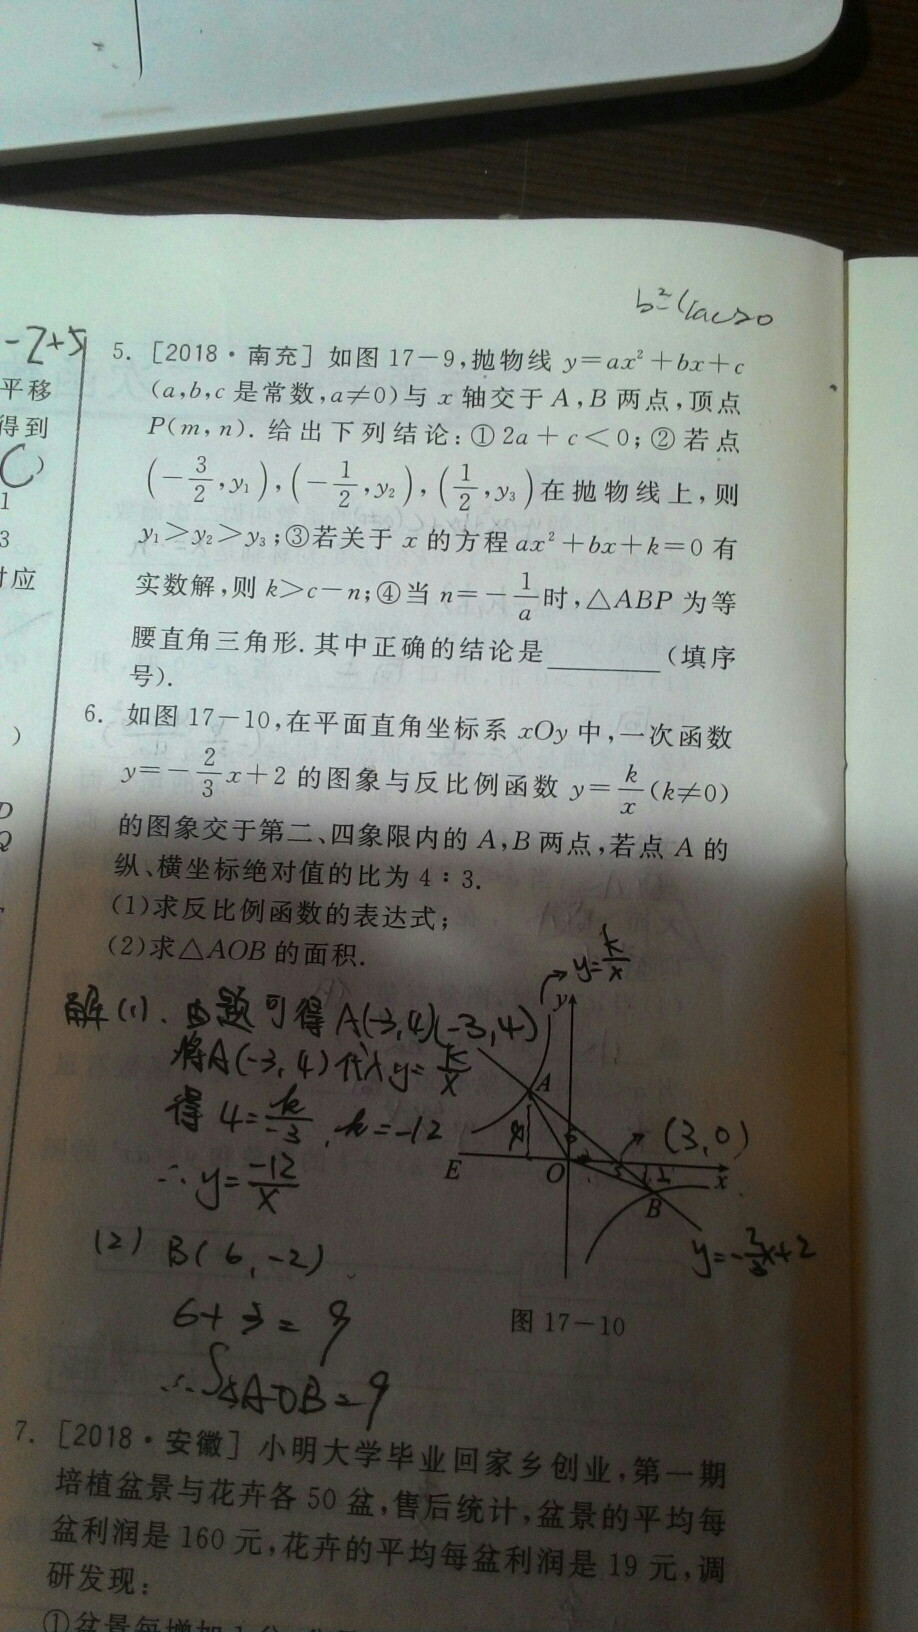 b²-4ac≥0
-2+5
平移
得到
C)
1
3
对应
)
D
Q
5. [2018·南充] 如图17-9,抛物线 y=ax²+bx+c
(a,b,c 是常数,a≠0)与 x 轴交于 A,B 两点,顶点
P(m,n). 给出下列结论:①2a+c<0;②若点
(-3/2,y₁),(-1/2,y₂),(1/2,y₃)在抛物线上,则
y₁>y₂>y₃;③若关于 x 的方程 ax²+bx+k=0 有
实数解,则 k>c-n;④当 n=-1/a时,△ABP 为等
腰直角三角形. 其中正确的结论是________(填序
号).
6. 如图17-10,在平面直角坐标系 xOy 中,一次函数
y=-2/3x+2 的图象与反比例函数 y=k/x(k≠0)
的图象交于第二、四象限内的 A,B 两点,若点 A 的
纵、横坐标绝对值的比为 4:3.
(1)求反比例函数的表达式;
(2)求△AOB 的面积.
y=k/x
解(1). 由题可得 A(-3,4)(-3,4)
y
将A(-3,4)代入 y=k/x
A
得 4=k/-3, k=-12
(3,0)
E
O
x
∴ y=-12/x
B
(2) B(6,-2)
y=-2/3x+2
6+3=9
图17-10
∴S△AOB=9
7. [2018·安徽] 小明大学毕业回家乡创业,第一期
培植盆景与花卉各 50 盆,售后统计,盆景的平均每
盆利润是 160 元,花卉的平均每盆利润是 19 元,调
研发现:
①盆景每增加1盆